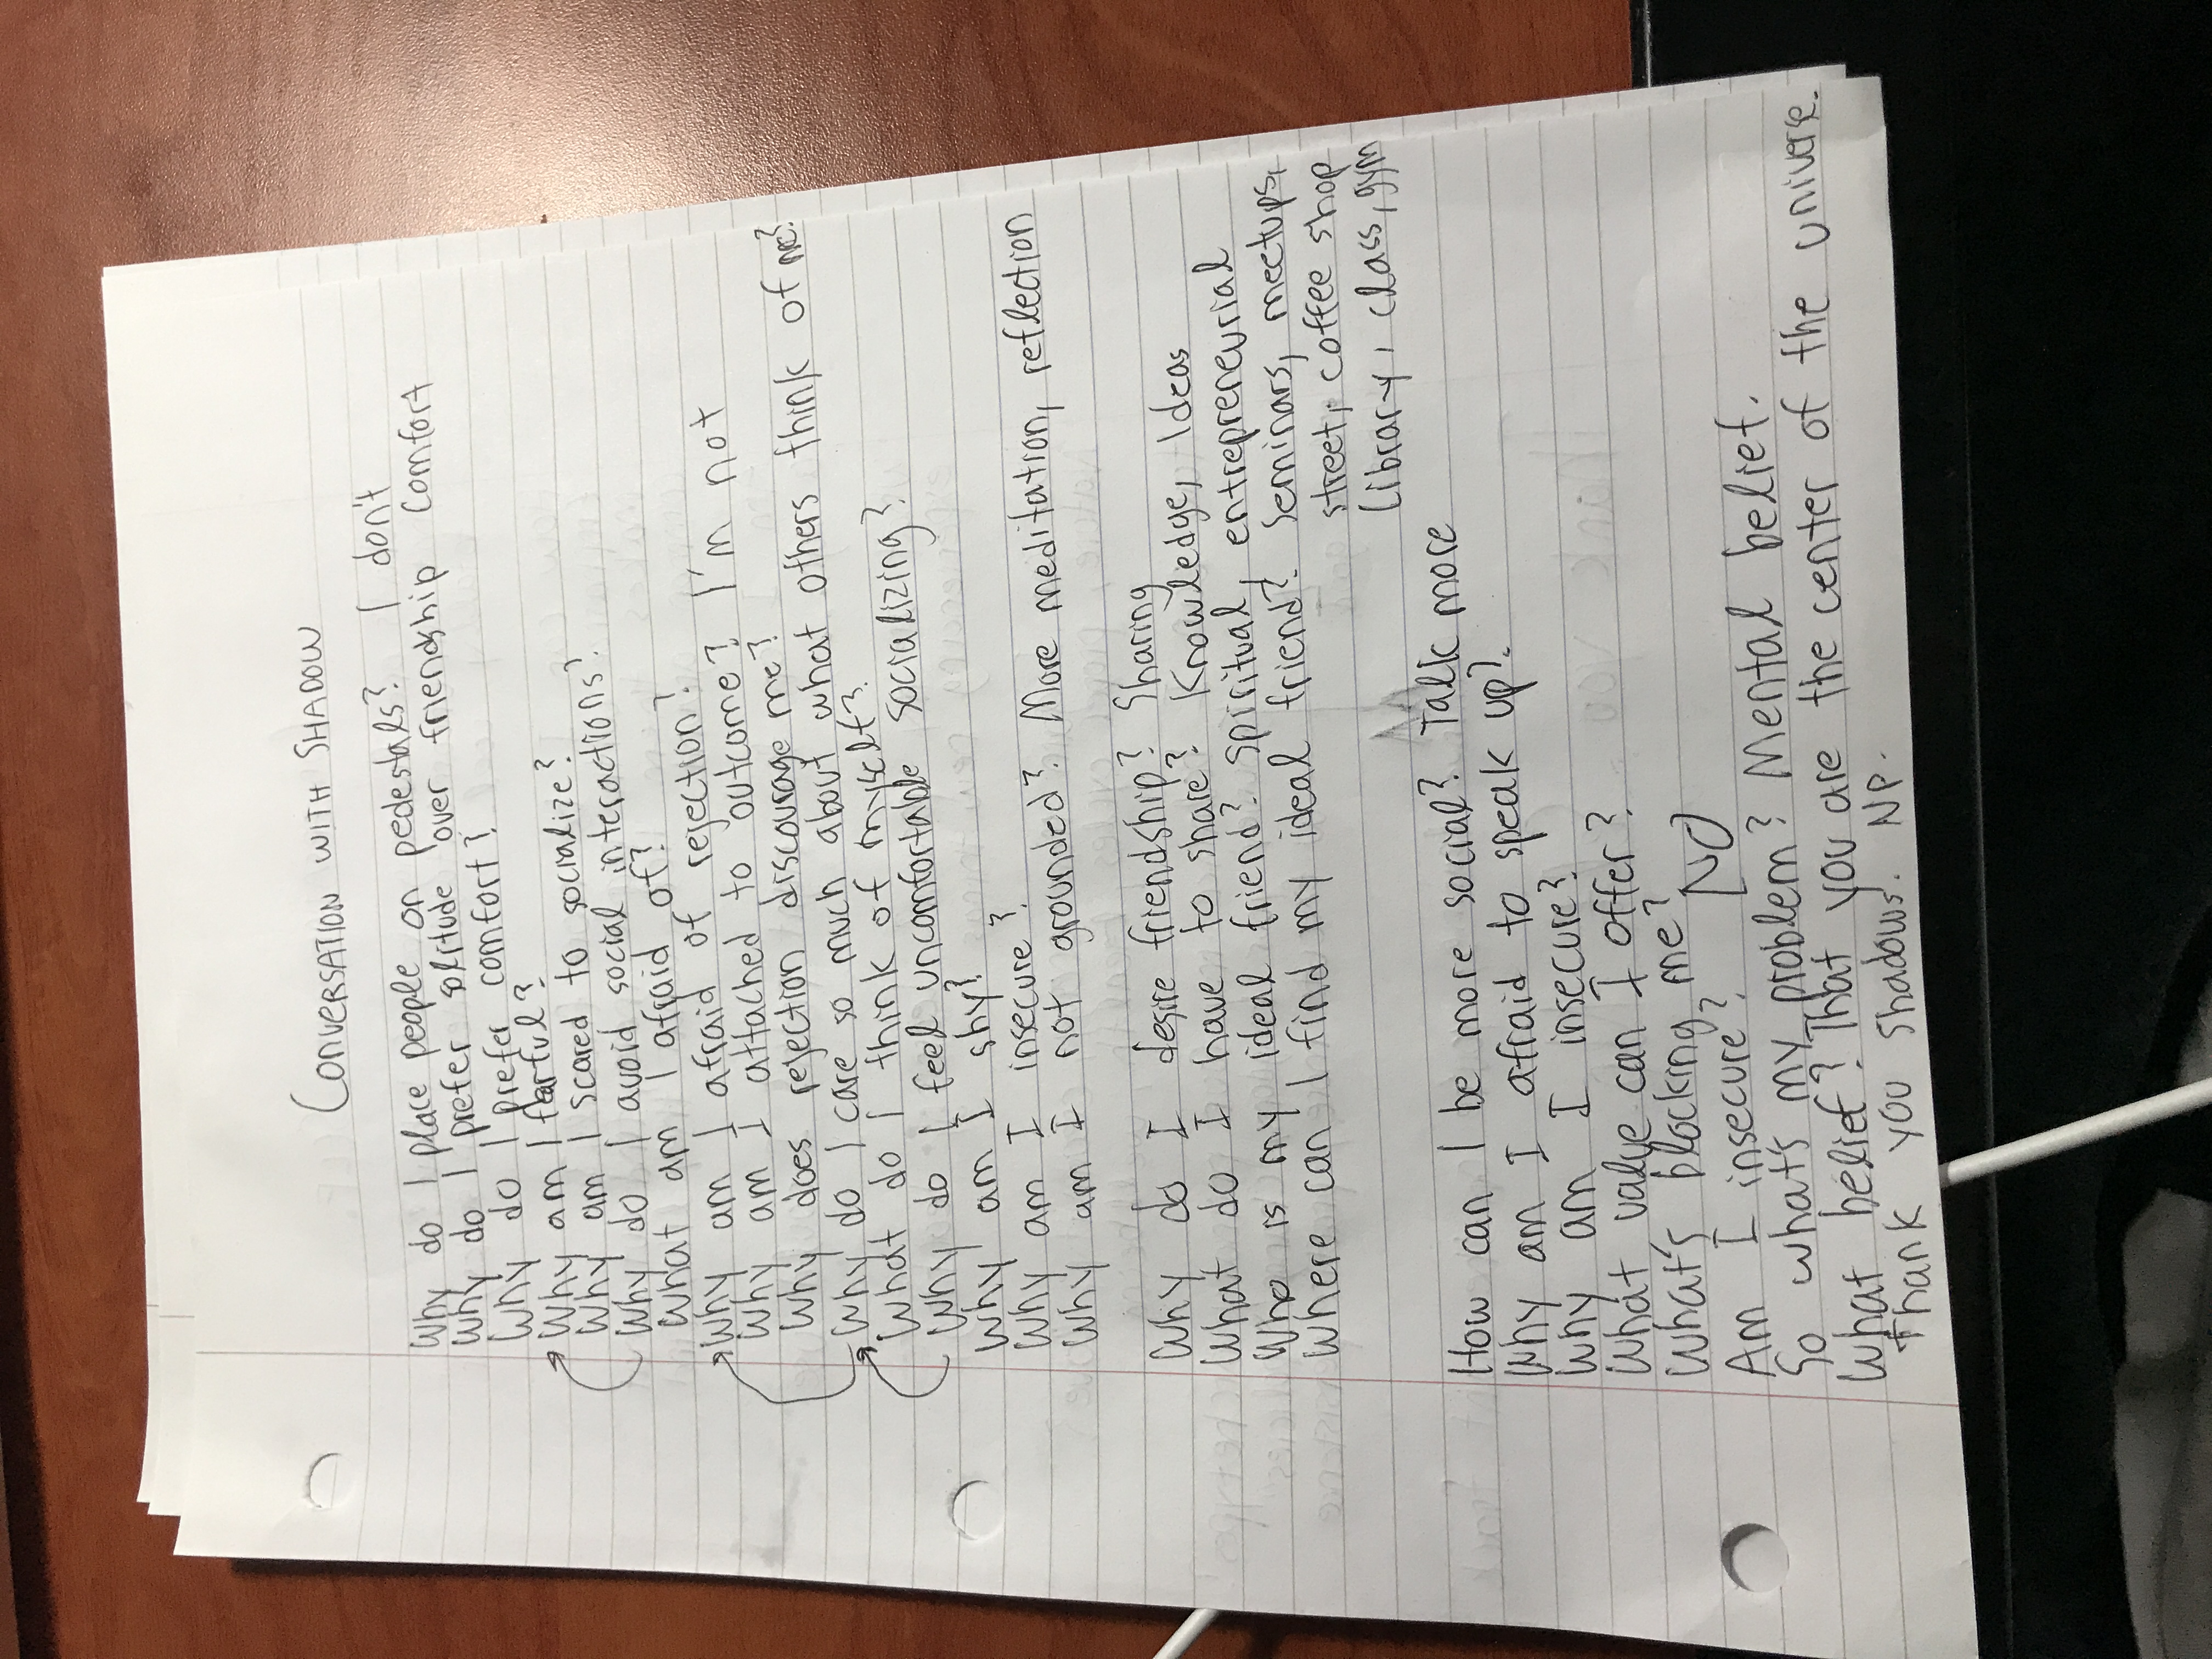 CONVERSATION WITH SHADOW
Why do I place people on pedestals? I don't
Why do I prefer solitude over friendship comfort
Why do I prefer comfort?
Why am I fearful?
Why am I scared to socialize?
Why do I avoid social interactions?
What am I afraid of?
Why am I afraid of rejection?
Why am I attached to outcome? I'm not
Why does rejection discourage me?
Why do I care so much about what others think of me?
What do I think of myself?
Why do I feel uncomfortable socializing?
Why am I shy?
Why am I insecure?
Why am I not grounded? More meditation, reflection
Why do I desire friendship? Sharing
What do I have to share? Knowledge, Ideas
Who is my ideal friend? Spiritual, entrepreneurial
Where can I find my ideal friend? Seminars, meetups,
street, coffee shop
Library, class, gym
How can I be more social? Talk more
Why am I afraid to speak up?
Why am I insecure?
What value can I offer?
What's blocking me?
Am I insecure? NO
So what's my problem? Mental belief.
What belief? That you are the center of the universe.
Thank you shadows. NP.